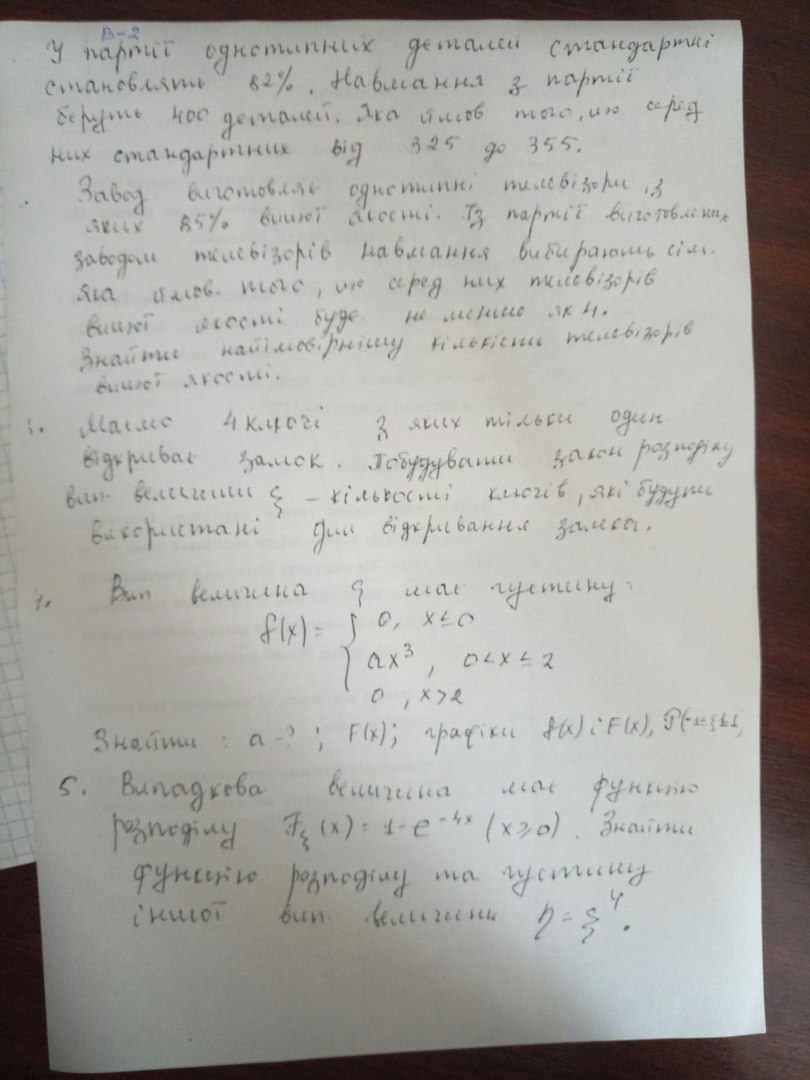 В-2
У партії однотипних деталей стандартні
становлять 82%. Навмання з партії
беруть 400 деталей. Яка ймов того, що серед
них стандартних від 325 до 355.
Завод виготовляє однотипні телевізори, з
яких 85% вищої якості. Із партії виготовлених
заводом телевізорів навмання вибирають сім.
Яка ймов. того, що серед них телевізорів
вищої якості буде не менше як 4.
Знайти найімовірнішу кількість телевізорів
вищої якості.
3. Маємо 4 ключі з яких тільки один
відкриває замок. Побудувати закон розподілу
вип величини ξ – кількості ключів, які будуть
використані для відкривання замка.
Вип величина ξ має густину:
f(x) = { 0, x ≤ 0
ax³, 0 < x ≤ 2
0, x > 2
Знайти: a - ?; F(x); графіки f(x) і F(x),
5. Випадкова величина має функцію
розподілу F_ξ(x) = 1 - e^{-4x} (x ≥ 0). Знайти
функцію розподілу та густину
іншої вип. величини η = ξ⁴.